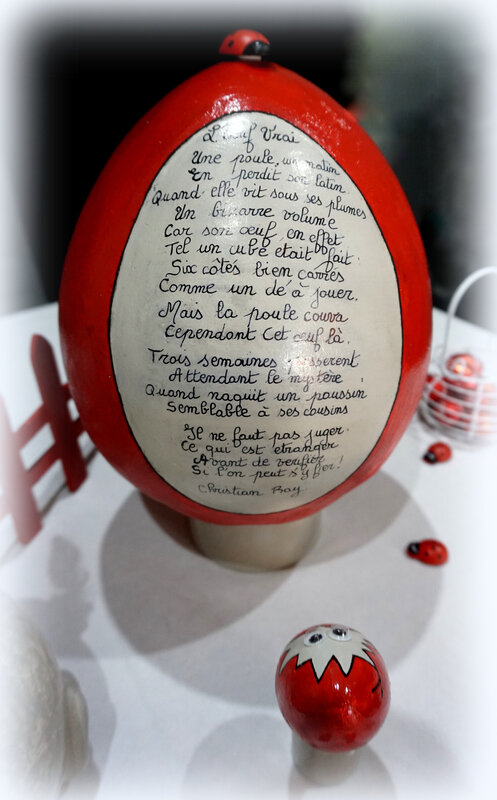 L'œuf Vrai
Une poule, un matin
En perdit son latin
Quand elle vit sous ses plumes
Un bizarre volume
Car son œuf, en effet
Tel un cube était fait :
Six côtés bien carrés
Comme un dé à jouer.
Mais la poule couva
Cependant Cet œuf là.
Trois semaines passèrent
Attendant le mystère
Quand naquit un poussin
Semblable à ses cousins
Il ne faut pas juger
Ce qui est étranger
Avant de vérifier
Si l'on peut s'y fier !
Christian Bay